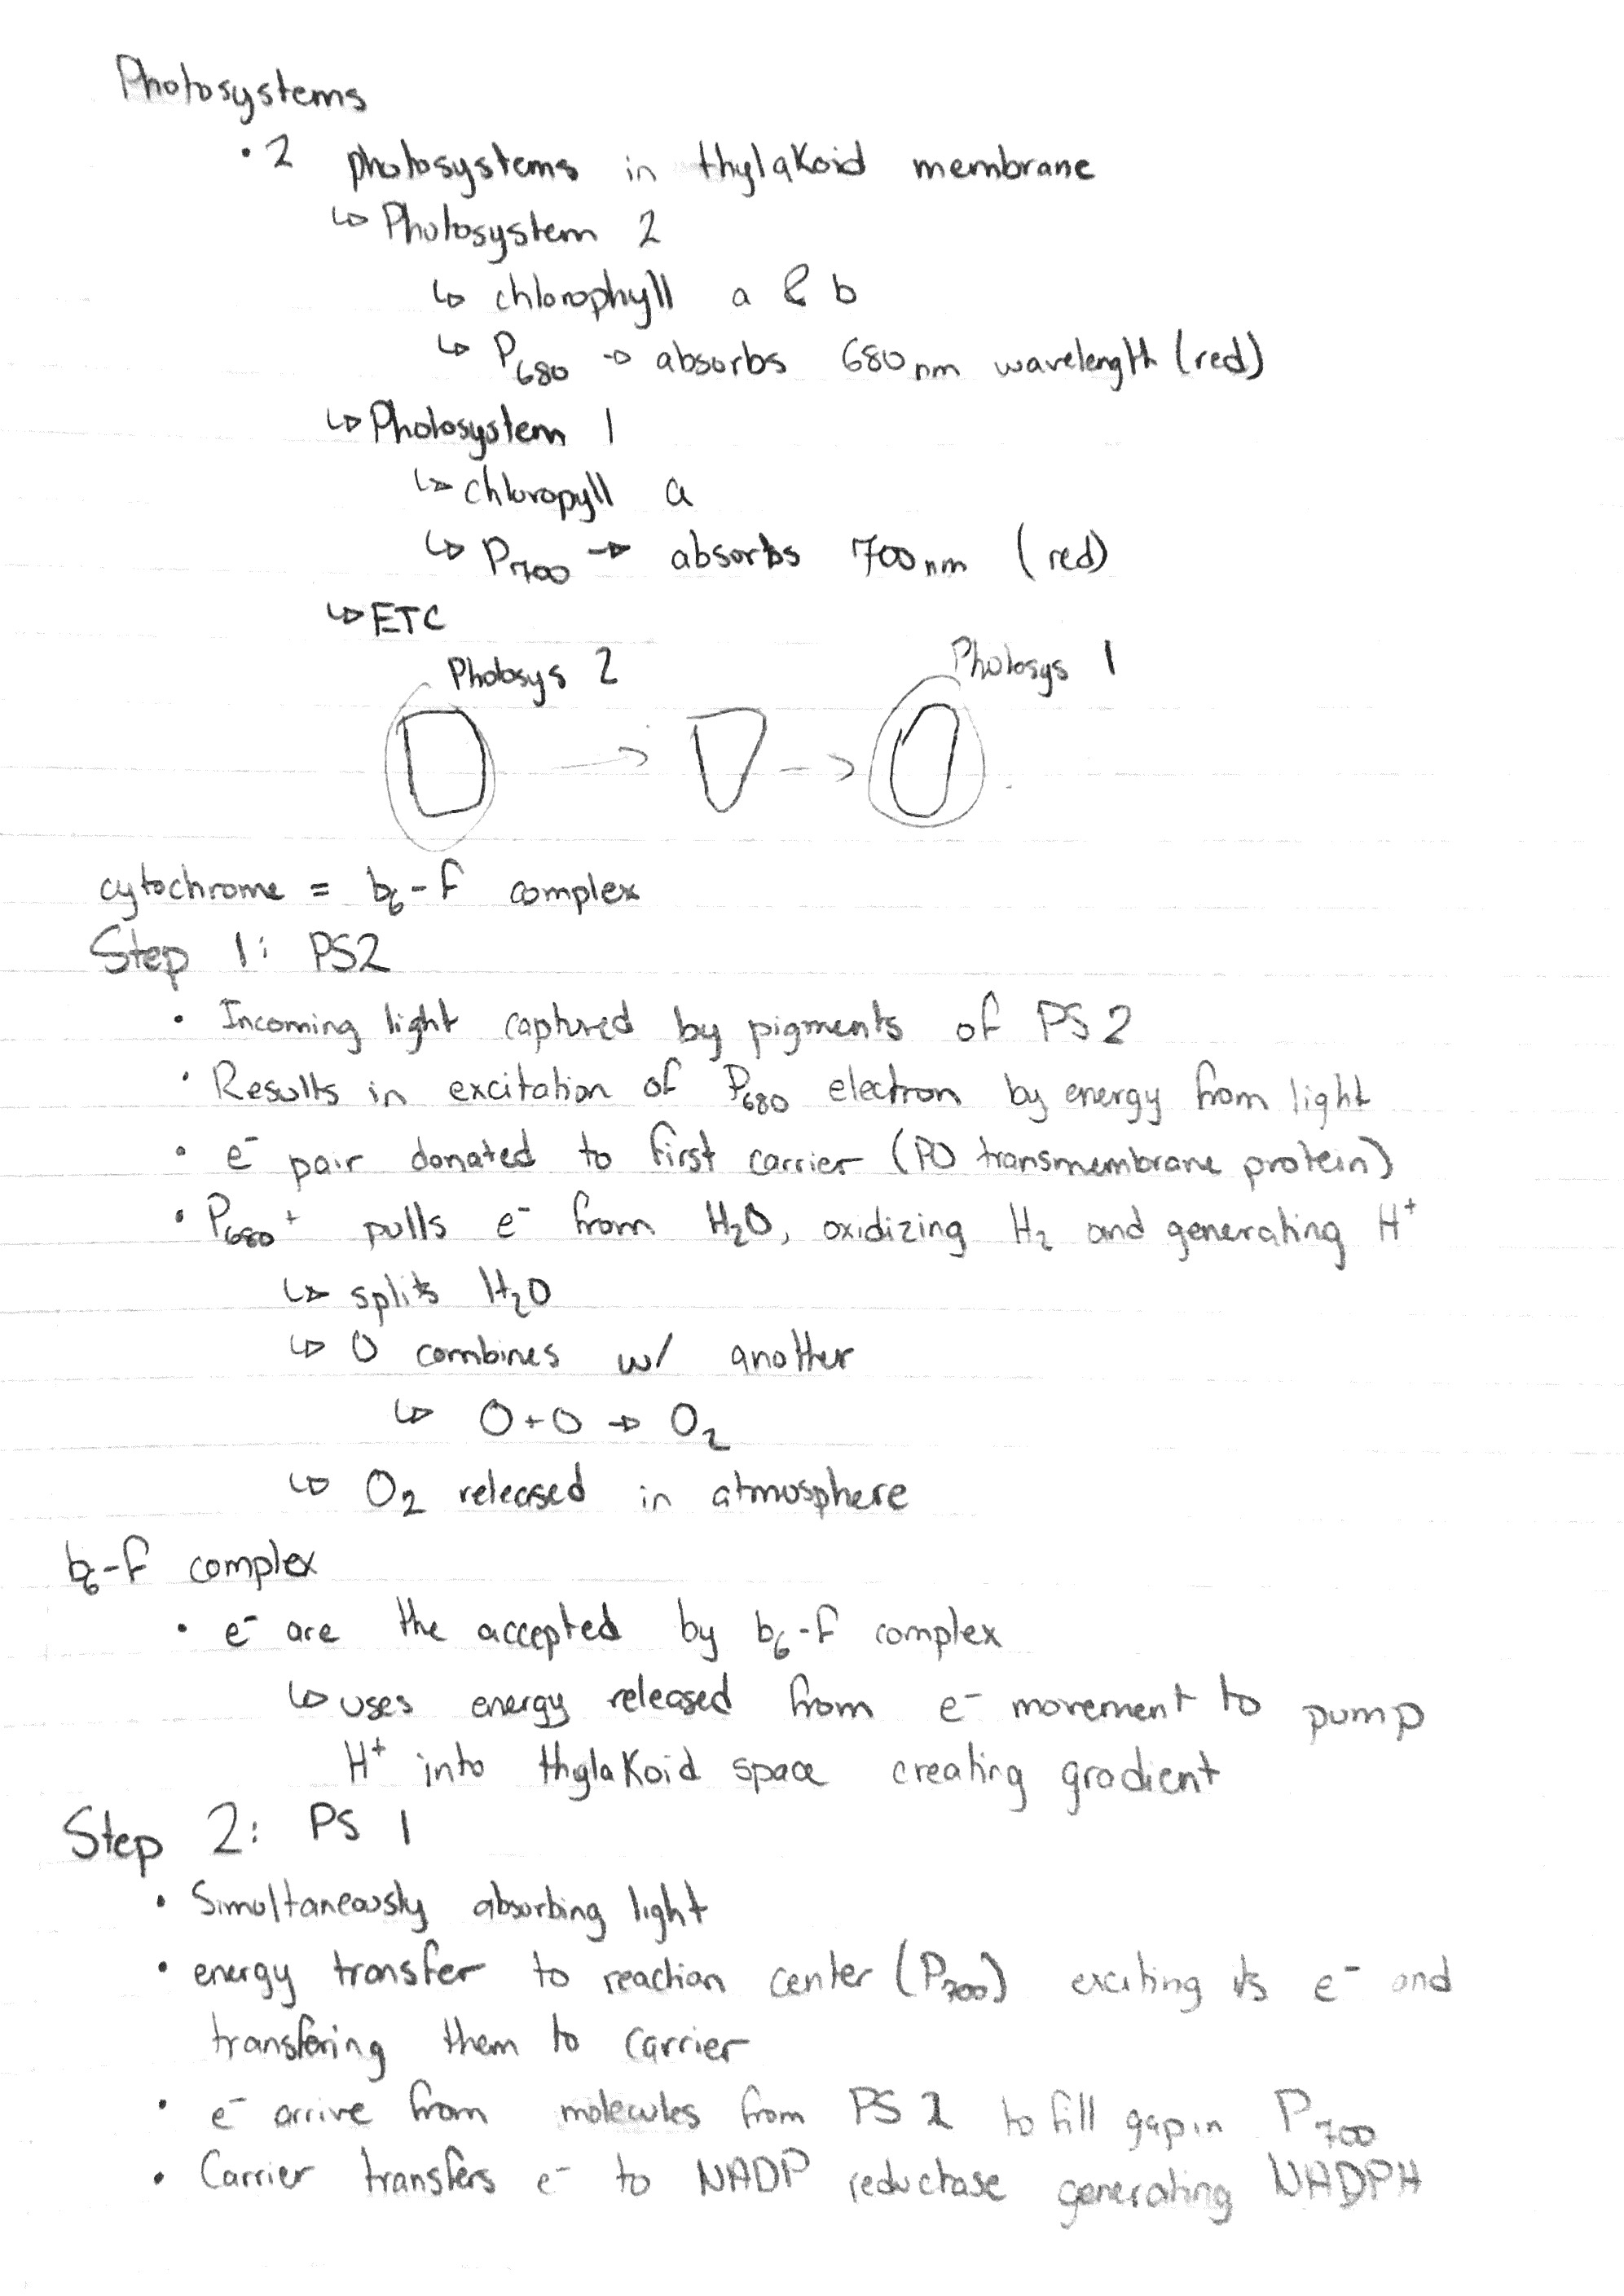 Photosystems
• 2 photosystems in thylakoid membrane
↳ Photosystem 2
↳ chlorophyll a & b
↳ P680 → absorbs 680nm wavelength (red)
↳ Photosystem 1
↳ chloropyll a
↳ P700 → absorbs 700nm (red)
↳ ETC
Photosys 2 Photosys 1
cytochrome = b6-f complex
Step 1: PS2
• Incoming light captured by pigments of PS2
• Results in excitation of P680 electron by energy from light
• e⁻ pair donated to first carrier (PQ transmembrane protein)
• P680⁺ pulls e⁻ from H₂O, oxidizing H₂ and generating H⁺
↳ splits H₂O
↳ O combines w/ another
↳ O + O → O₂
↳ O₂ released in atmosphere
b6-f complex
• e⁻ are the accepted by b6-f complex
↳ uses energy released from e⁻ movement to pump
H⁺ into thylakoid space creating gradient
Step 2: PS 1
• Simultaneously absorbing light
• energy transfer to reaction center (P700) exciting its e⁻ and
transfering them to carrier
• e⁻ arrive from molecules from PS 2 to fill gap in P700
• Carrier transfers e⁻ to NADP reductase generating NADPH